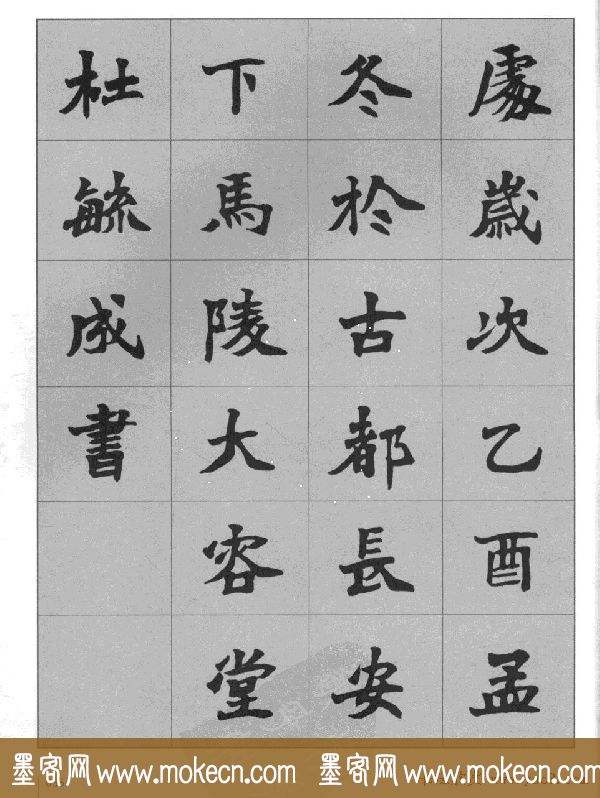 處歲次乙酉孟
冬於古都長安
下馬陵大容堂
杜毓成書
墨客网 www.mokecn.com 墨客网 www.mokecn.com